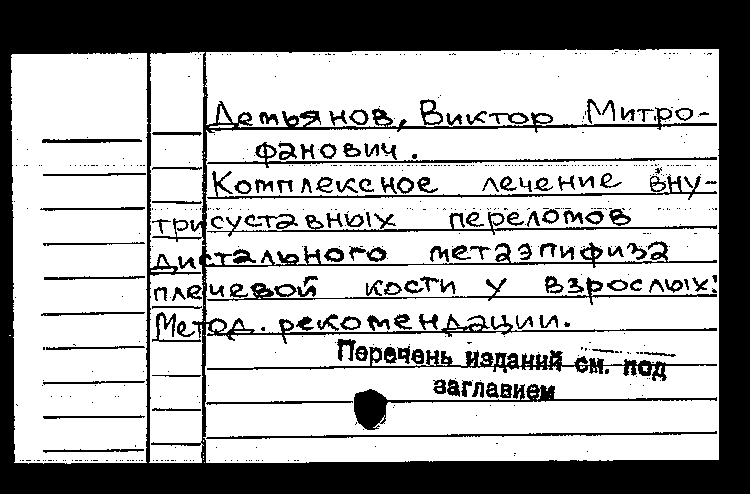 Демьянов, Виктор Митро-
фанович.
Комплексное лечение вну-
трисуставных переломов
дистального метаэпифиза
плечевой кости у взрослых:
Метод. рекомендации.
Перечень изданий см. под
заглавием